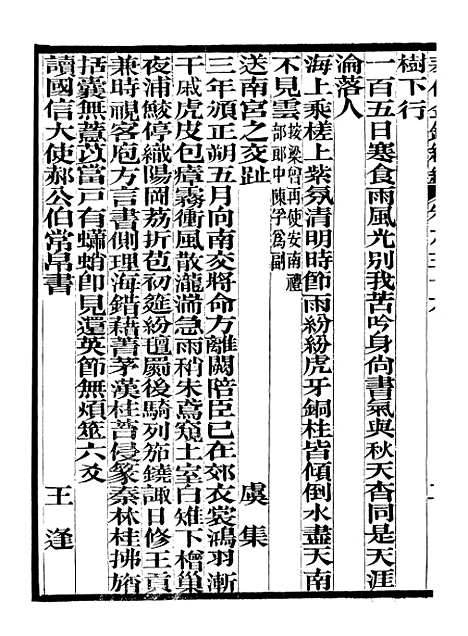 樹下行
一百五日寒食雨風光別我苦吟身尙書氣與秋天杳同是天涯
淪落人
海上乘槎上紫氛清明時節雨紛紛虎牙銅柱皆傾倒水盡天南
不見雲按梁曾再使安南禮部郎中陳孚爲副
送南宮之交趾 虞集
三年頒正朔五月向南交將命方離闕陪臣已在郊衣裳鴻羽漸
干戚虎皮包瘴霧衝風散瀧湍急雨稍朱鳶窺土室白雉下檜巢
夜浦鮫停織陽岡荔折苞初筵紛壇罽後騎列笳鐃諏日修王貢
兼時視客庖方言書側理海錯藉菁茅漢柱菭侵篆秦林桂拂旓
括囊無薏苡當戶有蠨蛸卽見還英節無煩筮六爻
讀國信大使郝公伯常帛書 王逢